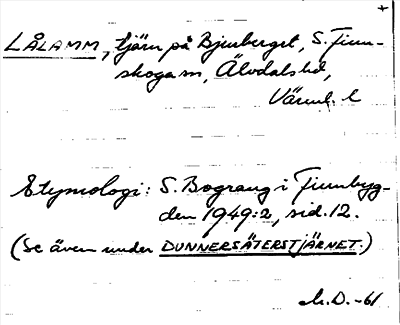 +
LÅLAMM, tjärn på Bjurberget, S. Finn-
skoga sn, Älvdals hd,
Värml. l
Etymologi: S. Bograng i Finnbyg-
den 1949:2, sid. 12.
(Se även under DUNNERSÄTERSTJÄRNET.)
M.D. -61